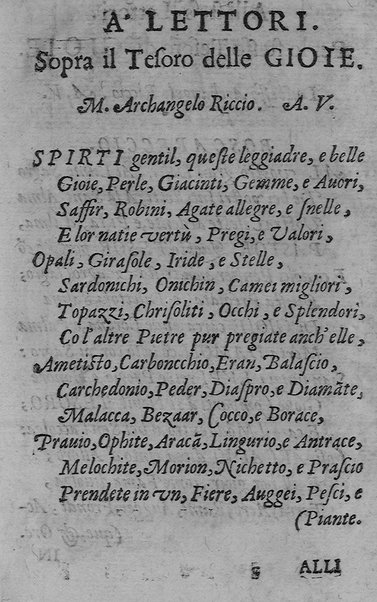 A' LETTORI.
Sopra il Tesoro delle GIOIE.
M. Archangelo Riccio. A. V.
SPIRTI gentil, queste leggiadre, e belle
Gioie, Perle, Giacinti, Gemme, e Auori,
Saffir, Robini, Agate allegre, e snelle,
E lor natie vertù, Pregi, e Valori,
Opali, Girasole, Iride, e Stelle,
Sardonichi, Onichin, Camei migliori,
Topazzi, Chrisoliti, Occhi, e Splendori,
Co l'altre Pietre pur pregiate anch'elle,
Ametisto, Carboncchio, Eran, Balascio,
Carchedonio, Peder, Diaspro, e Diamãte,
Malacca, Bezaar, Cocco, e Borace,
Prauio, Ophite, Aracã, Lingurio, e Antrace,
Melochite, Morion, Nichetto, e Prascio
Prendete in vn, Fiere, Auggei, Pesci, e
(Piante.
ALLI